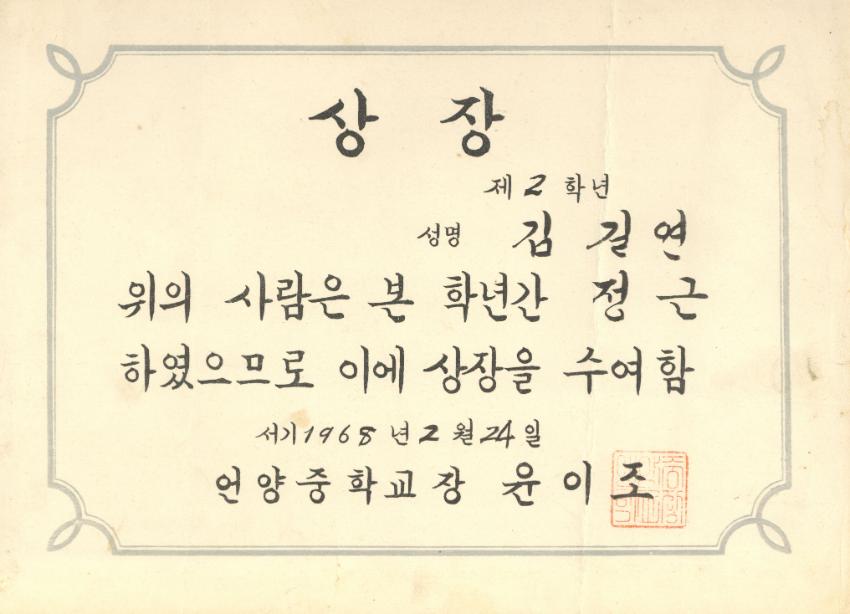 상 장
제 2 학년
성명 김 길 연
위의 사람은 본 학년간 정 근
하였으므로 이에 상장을 수여함
서기 1968 년 2 월 24 일
언양중학교장 윤 이 조